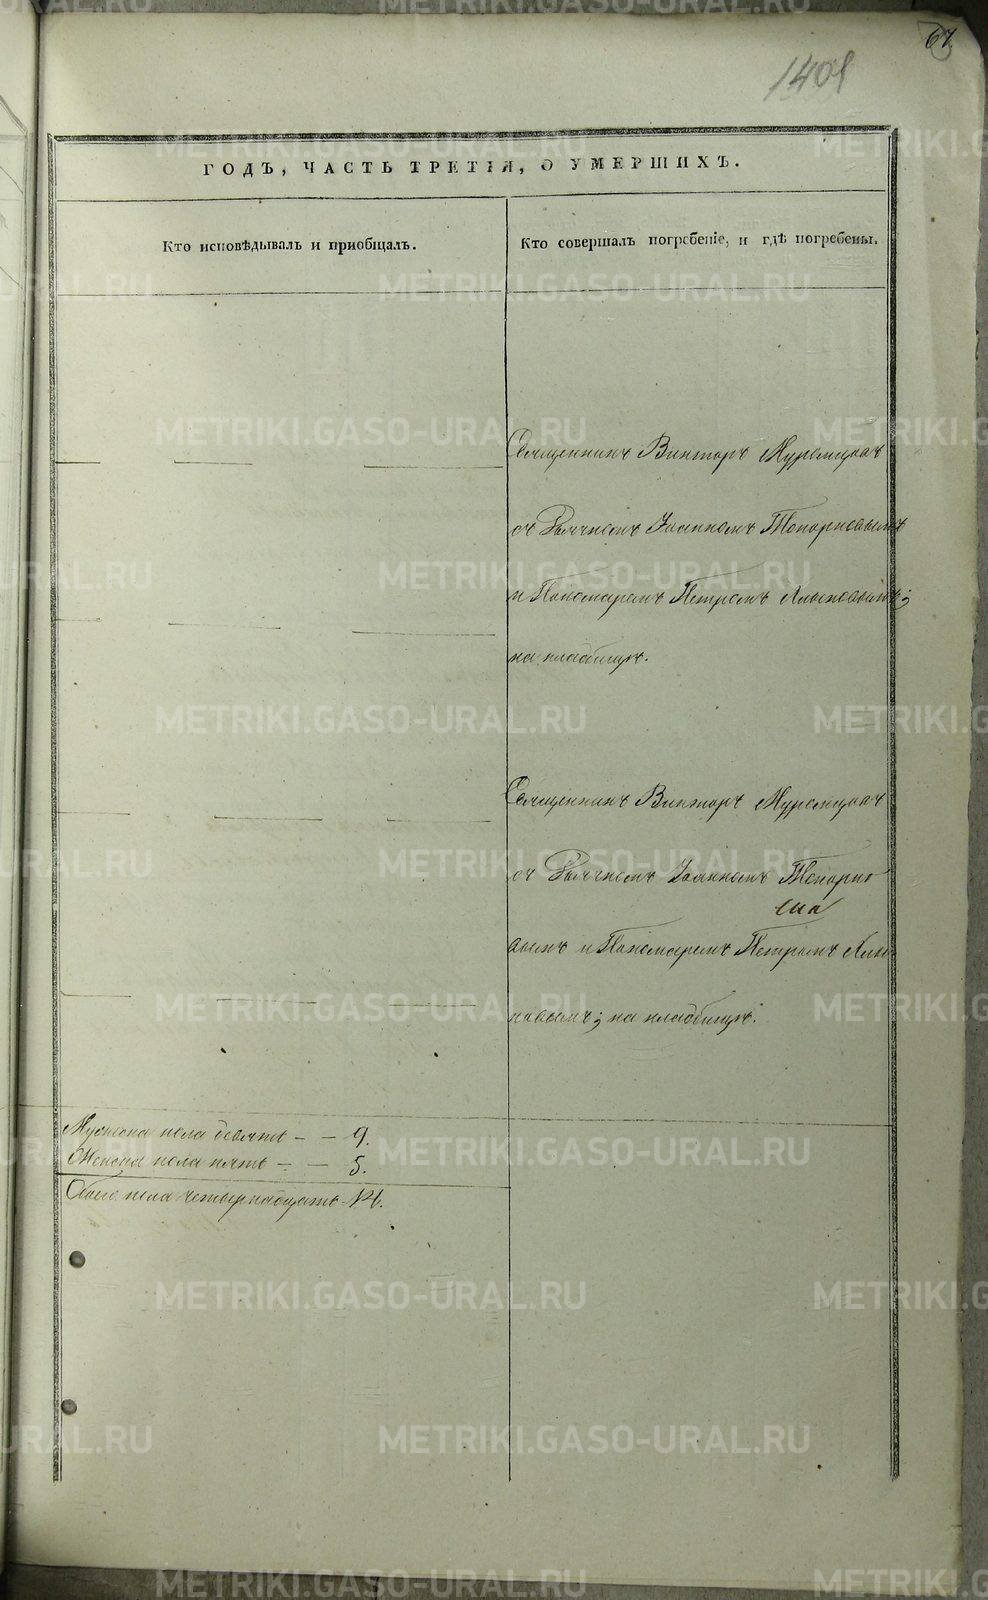 67
1401
ГОДЪ, ЧАСТЬ ТРЕТІЯ, О УМЕРШИХЪ.
Кто исповѣдывалъ и пріобщалъ.
Кто совершалъ погребеніе, и гдѣ погребены.
Священникъ Викторъ Муромцовъ
съ Дьячкомъ Іоанномъ Топорковымъ
и Пономаремъ Петромъ
на кладбищѣ.
Священникъ Викторъ Муромцовъ
съ Дьячкомъ Іоанномъ Топорко
вымъ и Пономаремъ Петромъ
новымъ; на кладбищѣ.
Мужеска пола девять - - 9.
Женска пола пять - - 5.
Обоего пола четырнадцать 14.
METRIKI.GASO-URAL.RU